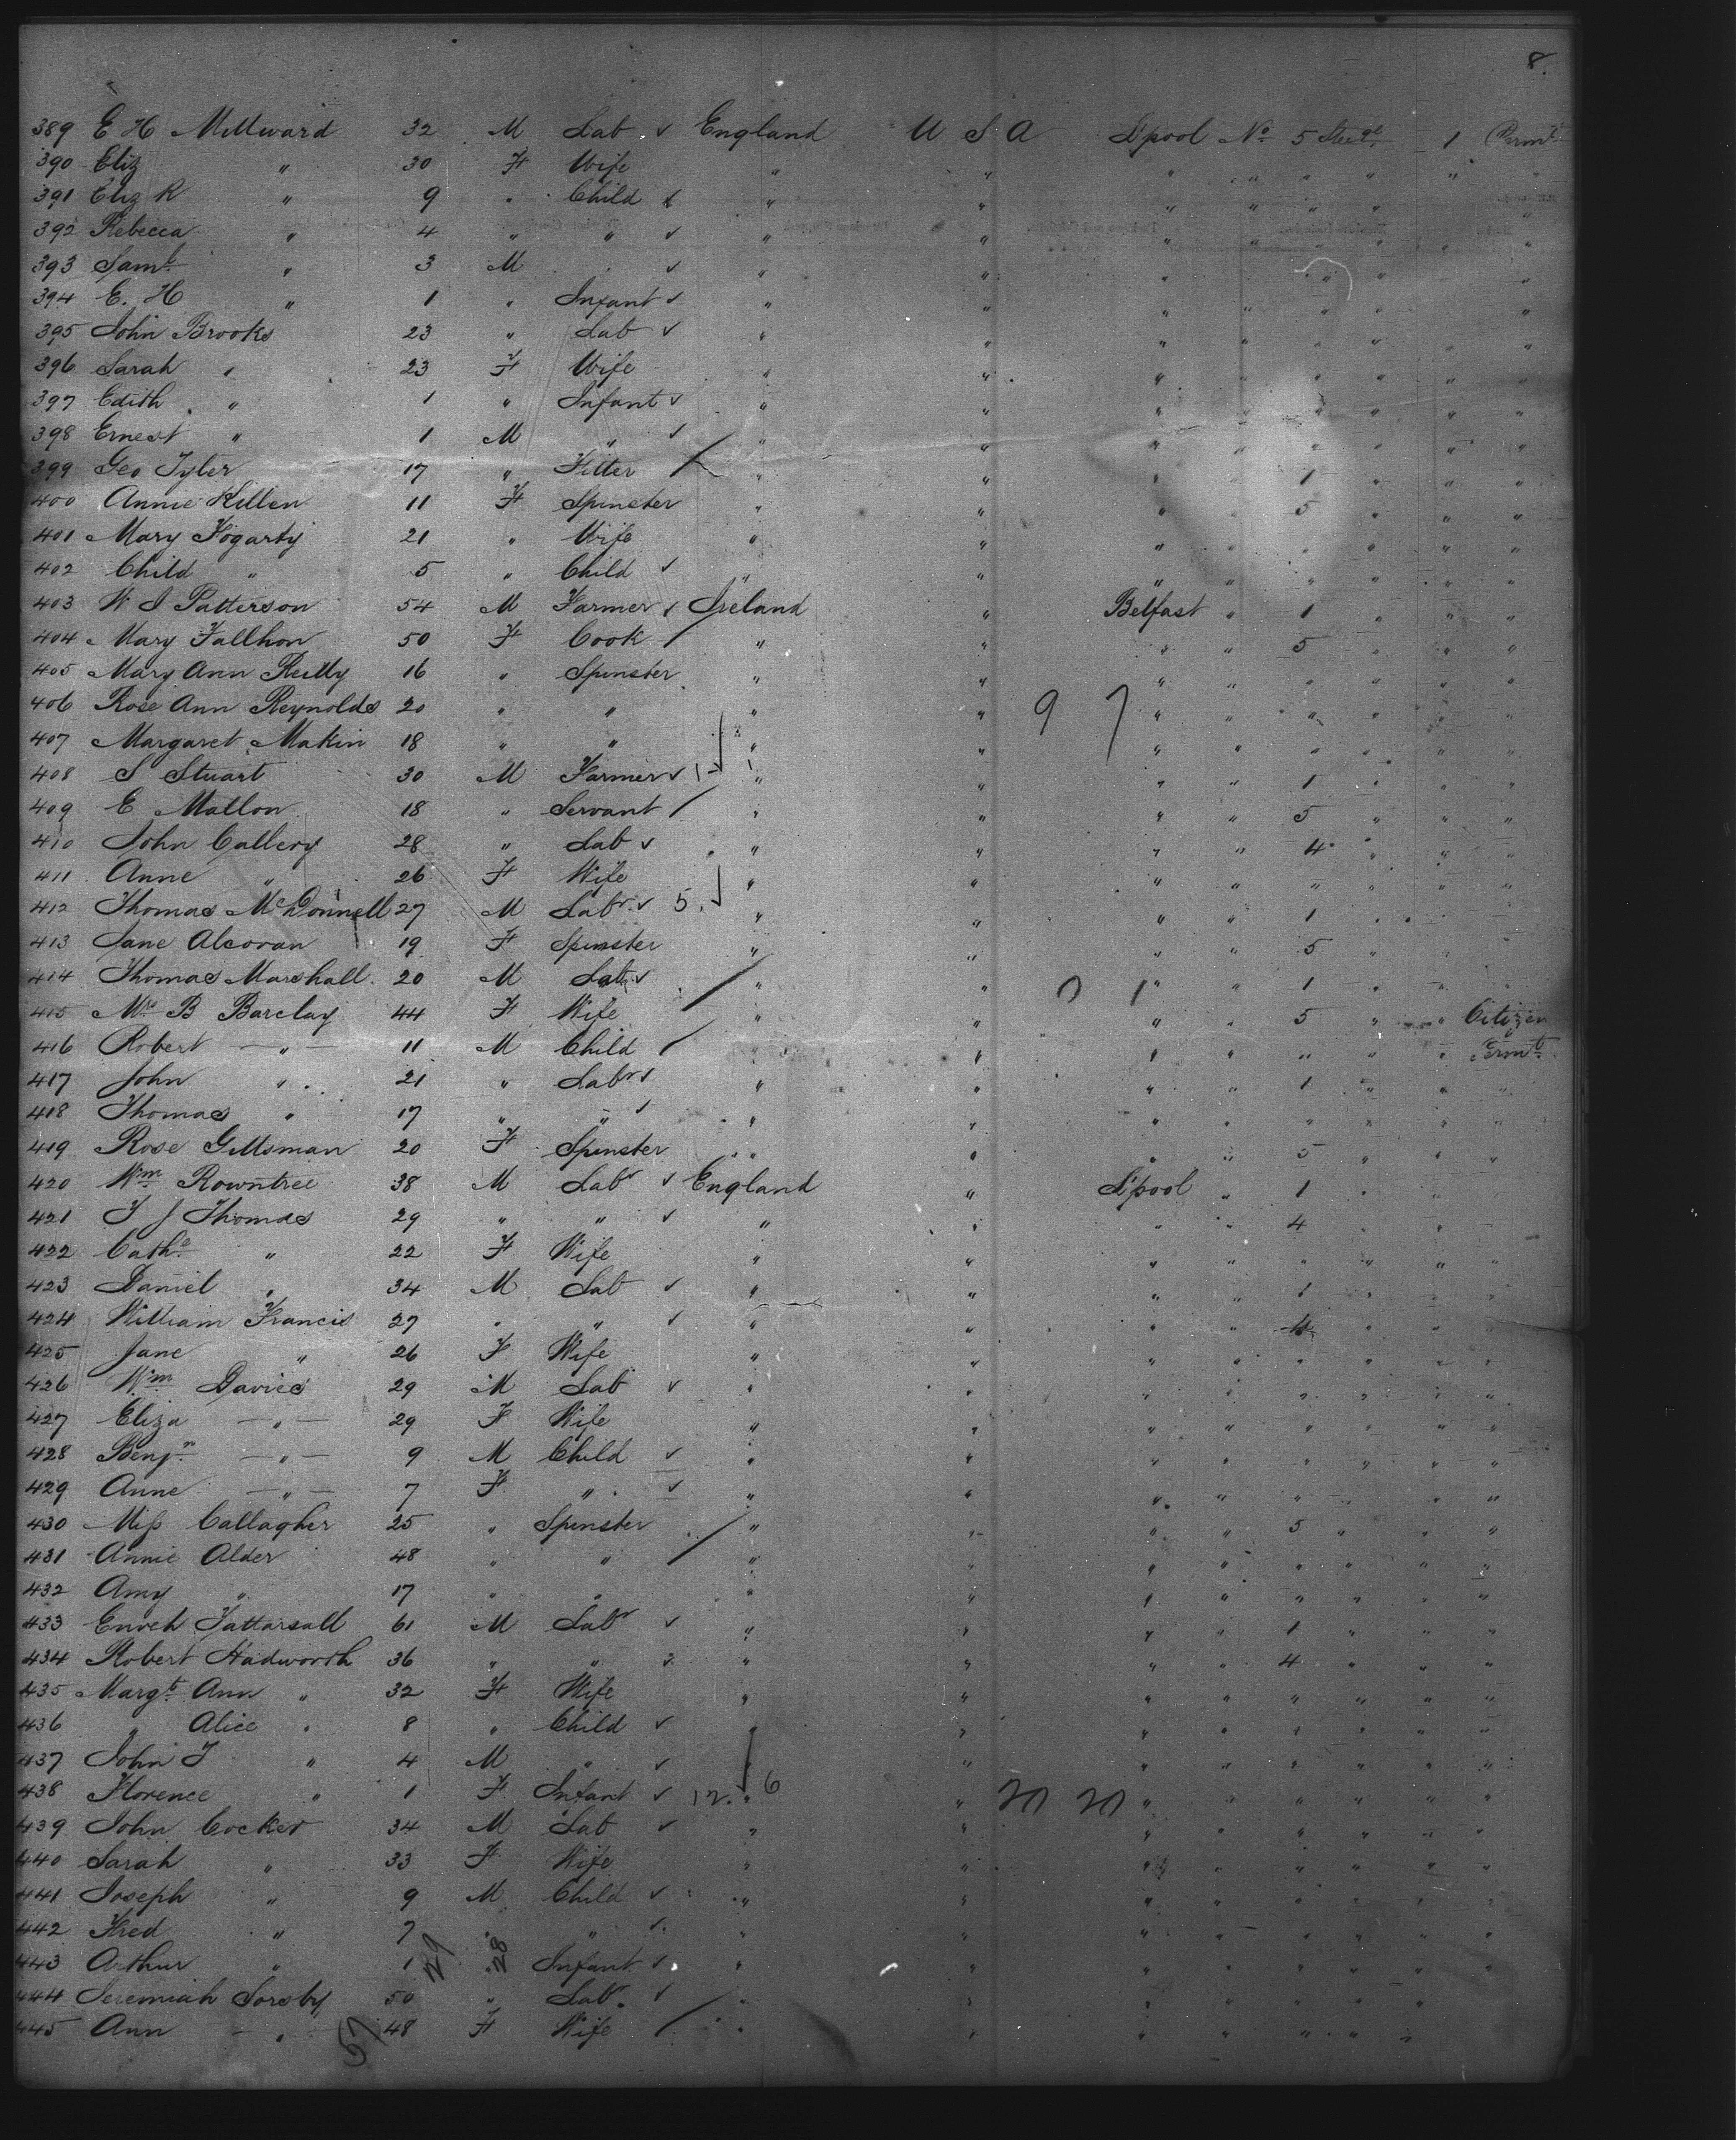 8.
389 E H Millward 32 M Lab ✓ England U S A L'pool No 5 Steerge 1 Permt
390 Eliz " 30 F Wife " " " " " " " "
391 Eliz R " 9 " Child ✓ " " " " " " " "
392 Rebecca " 4 " " ✓ " " " " " " " "
393 Saml " 3 M " ✓ " " " " " " " "
394 E. H " 1 " Infant ✓ " " " " " " " "
395 John Brooks 23 " Lab ✓ " " " " " " " "
396 Sarah " 23 F Wife " " " " " " " "
397 Edith " 1 " Infant ✓ " " " " " " " "
398 Ernest " 1 M " ✓ " " " " " " " "
399 Geo Tyler 17 " Fitter / " " " " 1 " " "
400 Annie Killen 11 F Spinster " " " " 5 " " "
401 Mary Fogarty 21 " Wife " " " " " " " "
402 Child " 5 " Child ✓ " " " " " " " "
403 W J Patterson 54 M Farmer ✓ Ireland " Belfast " 1 " " "
404 Mary Fallhon 50 F Cook / " " " " 5 " " "
405 Mary Ann Reilly 16 " Spinster " " " " " " " "
406 Rose Ann Reynolds 20 " " " " 9 7 " " " " " "
407 Margaret Makin 18 " " " " " " " " " "
408 S Stuart 30 M Farmer ✓ " " " " 1 " " "
409 E Mallon 18 " Servant / " " " " 5 " " "
410 John Callery 28 " Lab ✓ " " " " 4 " " "
411 Anne " 26 F Wife " " " " " " " "
412 Thomas McDonnell 27 M Labr ✓ 5 " " " " 1 " "
413 Jane Alcoran 19 F Spinster " " " " 5 " "
414 Thomas Marshall 20 M Lab ✓ / " " 0 1 " " 1 " " "
415 Mrs B Barclay 44 F Wife " " " " 5 " " Citizen
416 Robert " 11 M Child / " " " " " " " Permt
417 John " 21 " Labr ✓ " " " " 1 " " "
418 Thomas " 17 " " ✓ " " " " " " " "
419 Rose Gillsman 20 F Spinster " " " " 5 " " "
420 Wm Rowntree 38 M Labr ✓ England " L'pool " 1 " "
421 T J Thomas 29 " " ✓ " " " " 4 " " "
422 Cathe " 22 F Wife " " " " " " " "
423 Daniel " 34 M Lab ✓ " " " " 1 " " "
424 William Francis 27 " " ✓ " " " " 4 " " "
425 Jane " 26 F Wife " " " " " " " "
426 Wm Davies 29 M Lab ✓ " " " " " " " "
427 Eliza " 29 F Wife " " " " " " " "
428 Benjn " 9 M Child ✓ " " " " " " " "
429 Anne " 7 F " ✓ " " " " " " " "
430 Miss Callagher 25 " Spinster " " " " 5 " " "
431 Annie Alder 48 " " / " " " " " " " "
432 Amy " 17 " " " " " " " " " "
433 Enoch Tattarsall 61 M Labr ✓ " " " " 1 " " "
434 Robert Hadworth 36 " " ✓ " " " " 4 " " "
435 Margt Ann " 32 F Wife " " " " " " " "
436 " Alice " 8 " Child ✓ " " " " " " " "
437 John T " 4 M " ✓ " " " " " " " "
438 Florence " 1 F Infant ✓ 12 " 6 " 20 20 " " " " " "
439 John Cocker 34 M Lab ✓ " " " " " " " "
440 Sarah " 33 F Wife " " " " " " " "
441 Joseph " 9 M Child ✓ " " " " " " " "
442 Fred " 7 " " ✓ " " " " " " " "
443 Arthur " 1 " Infant ✓ " " " " " " " "
444 Jeremiah Soresby 50 " Labr ✓ " " " " " " "
445 Ann " 48 F Wife / " " " " " " "
29 28
57